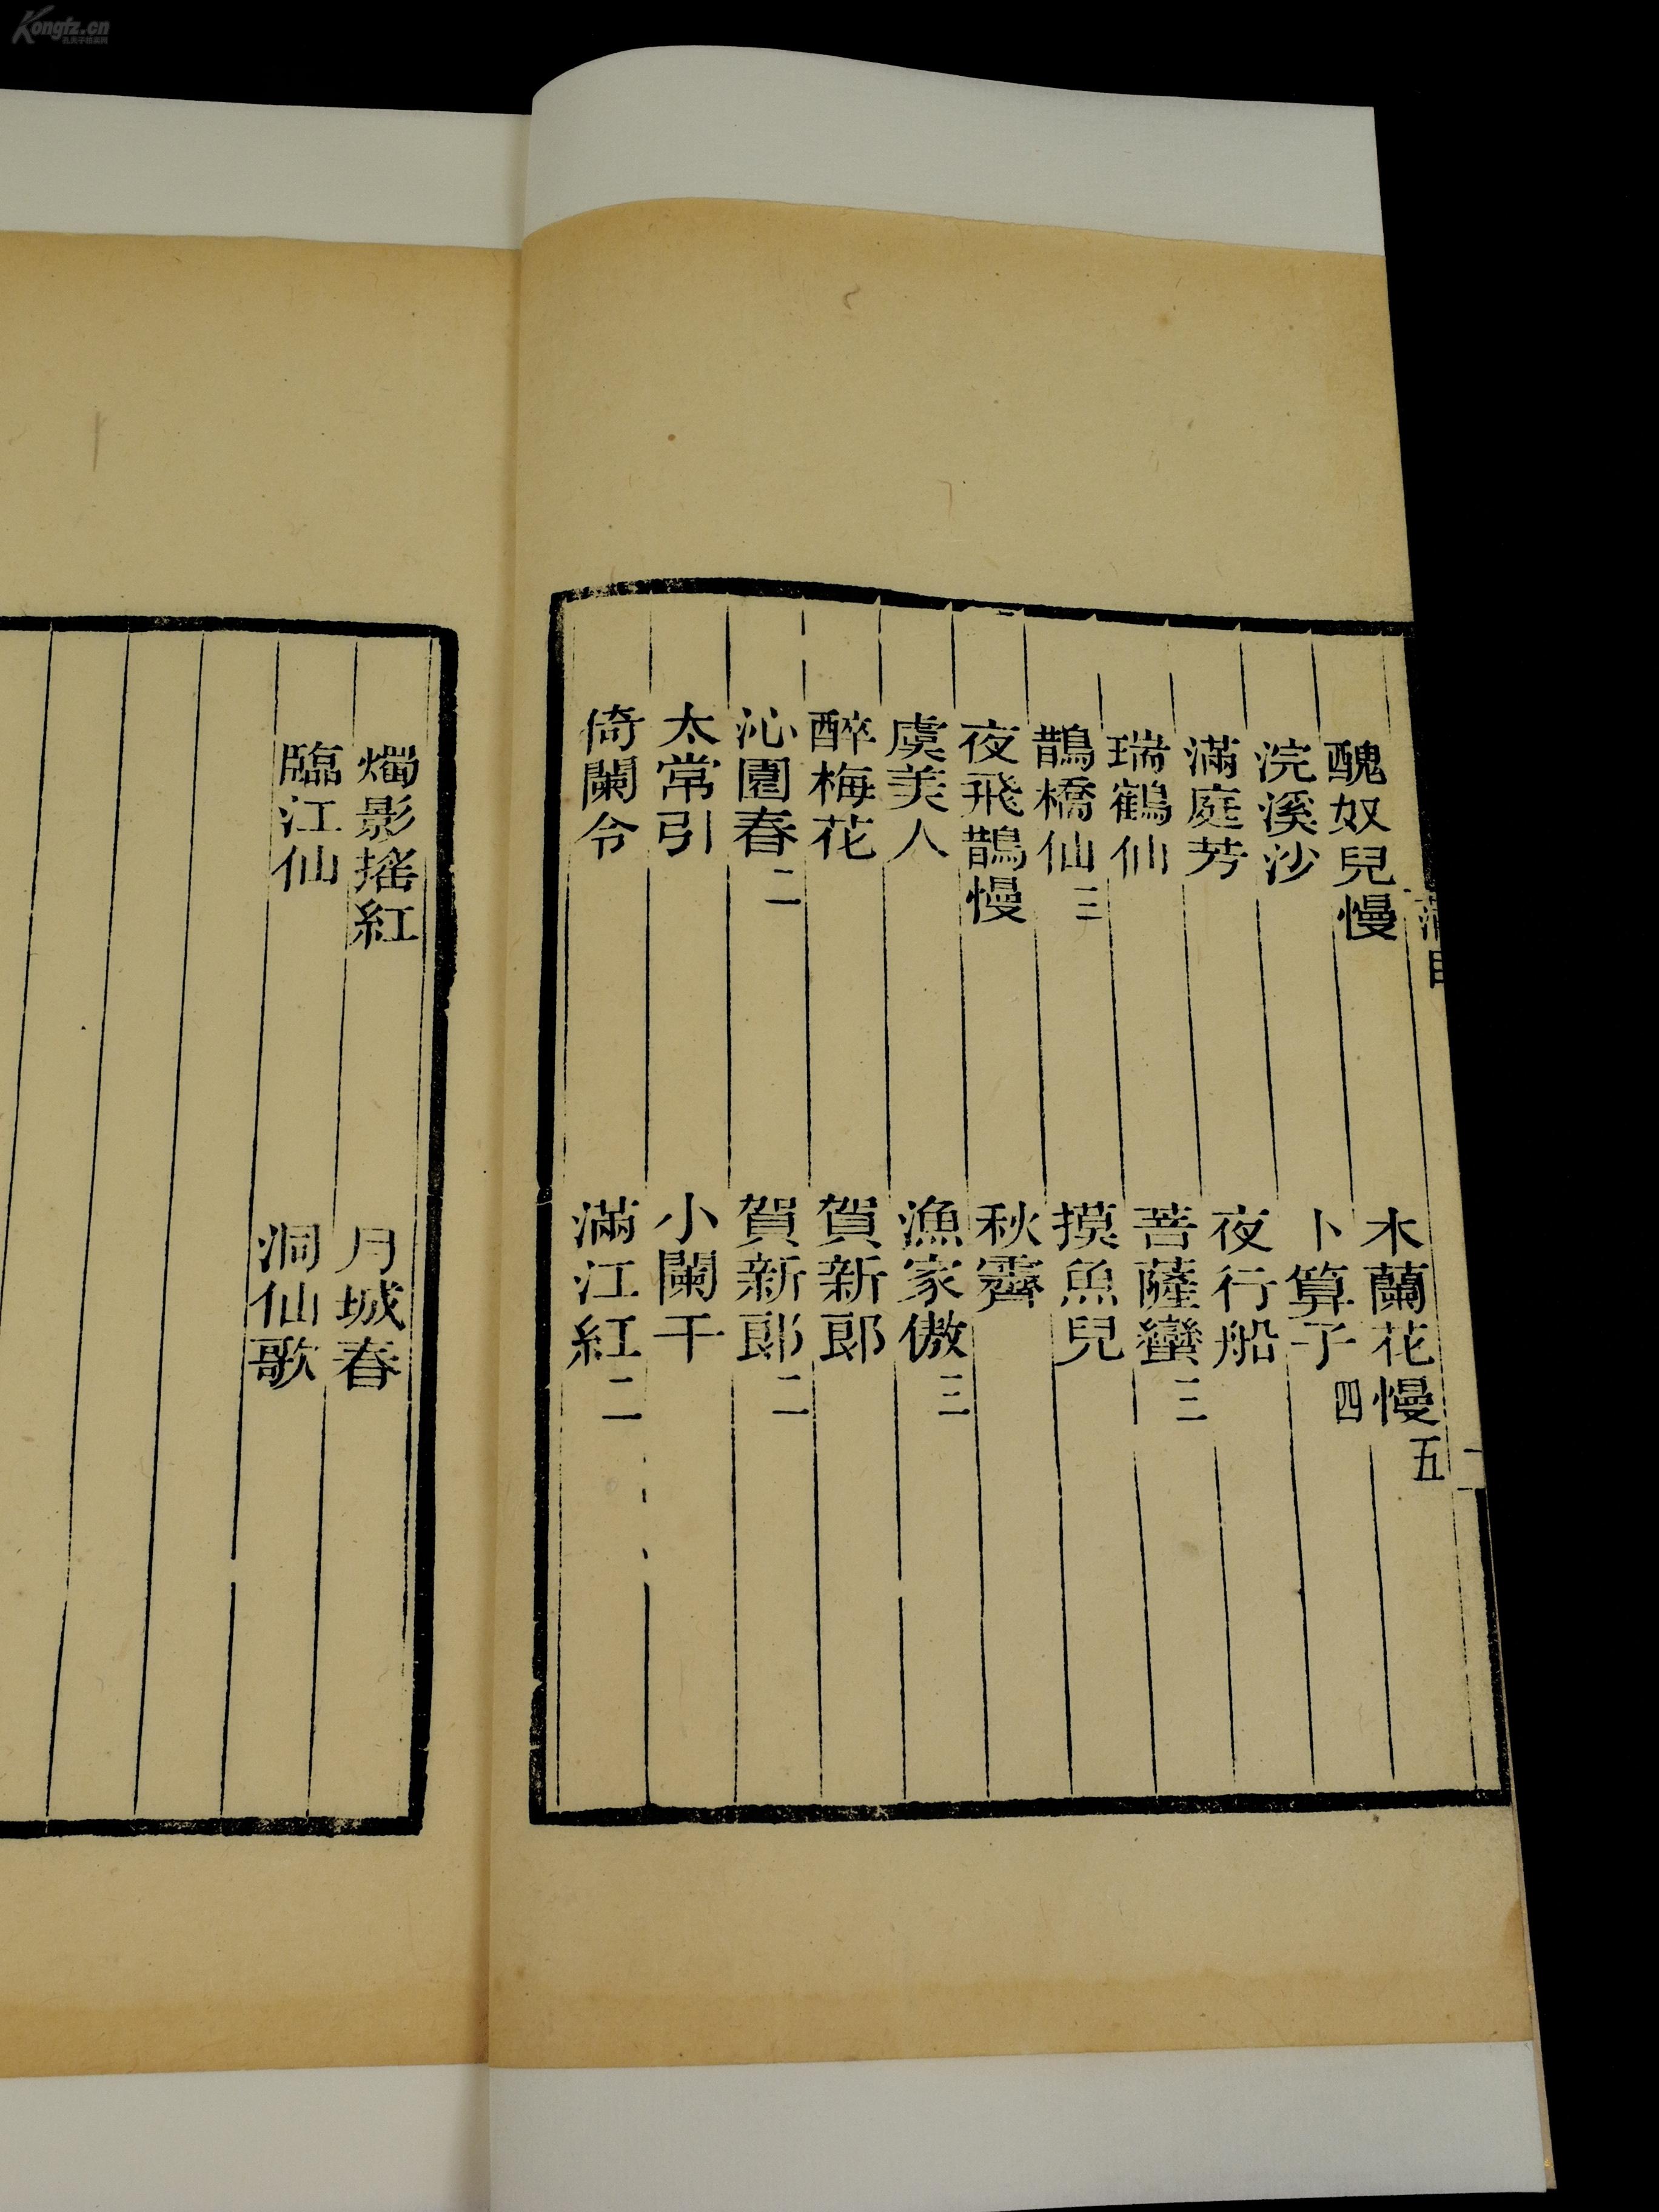 Kongfz.cn
孔夫子旧书网
醜奴兒慢 木蘭花慢五
浣溪沙 卜算子四
滿庭芳 夜行船
瑞鶴仙 菩薩蠻三
鵲橋仙三 摸魚兒
夜飛鵲慢 秋霽
虞美人 漁家傲三
醉梅花 賀新郎
沁園春二 賀新郎二
太常引 小闌干
倚闌令 滿江紅二
燭影搖紅 月城春
臨江仙 洞仙歌